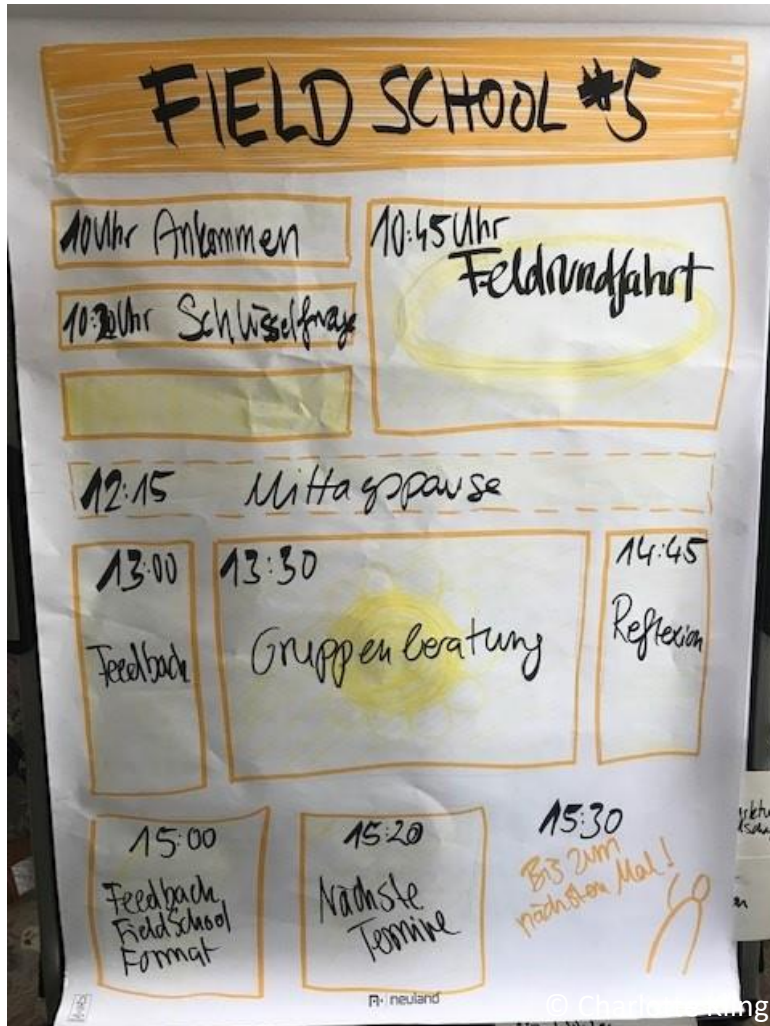 FIELD SCHOOL #5
10 Uhr Ankommen
10:45 Uhr
Feldrundfahrt
10:30 Uhr Schlüsselfrage
12:15 Mittagspause
13:00
Feedback
13:30
Gruppenberatung
14:45
Reflexion
15:00
Feedback
FieldSchool
Format
15:20
Nächste
Termine
15:30
Bis zum
nächsten Mal!
neuland
© Charlotte Kling